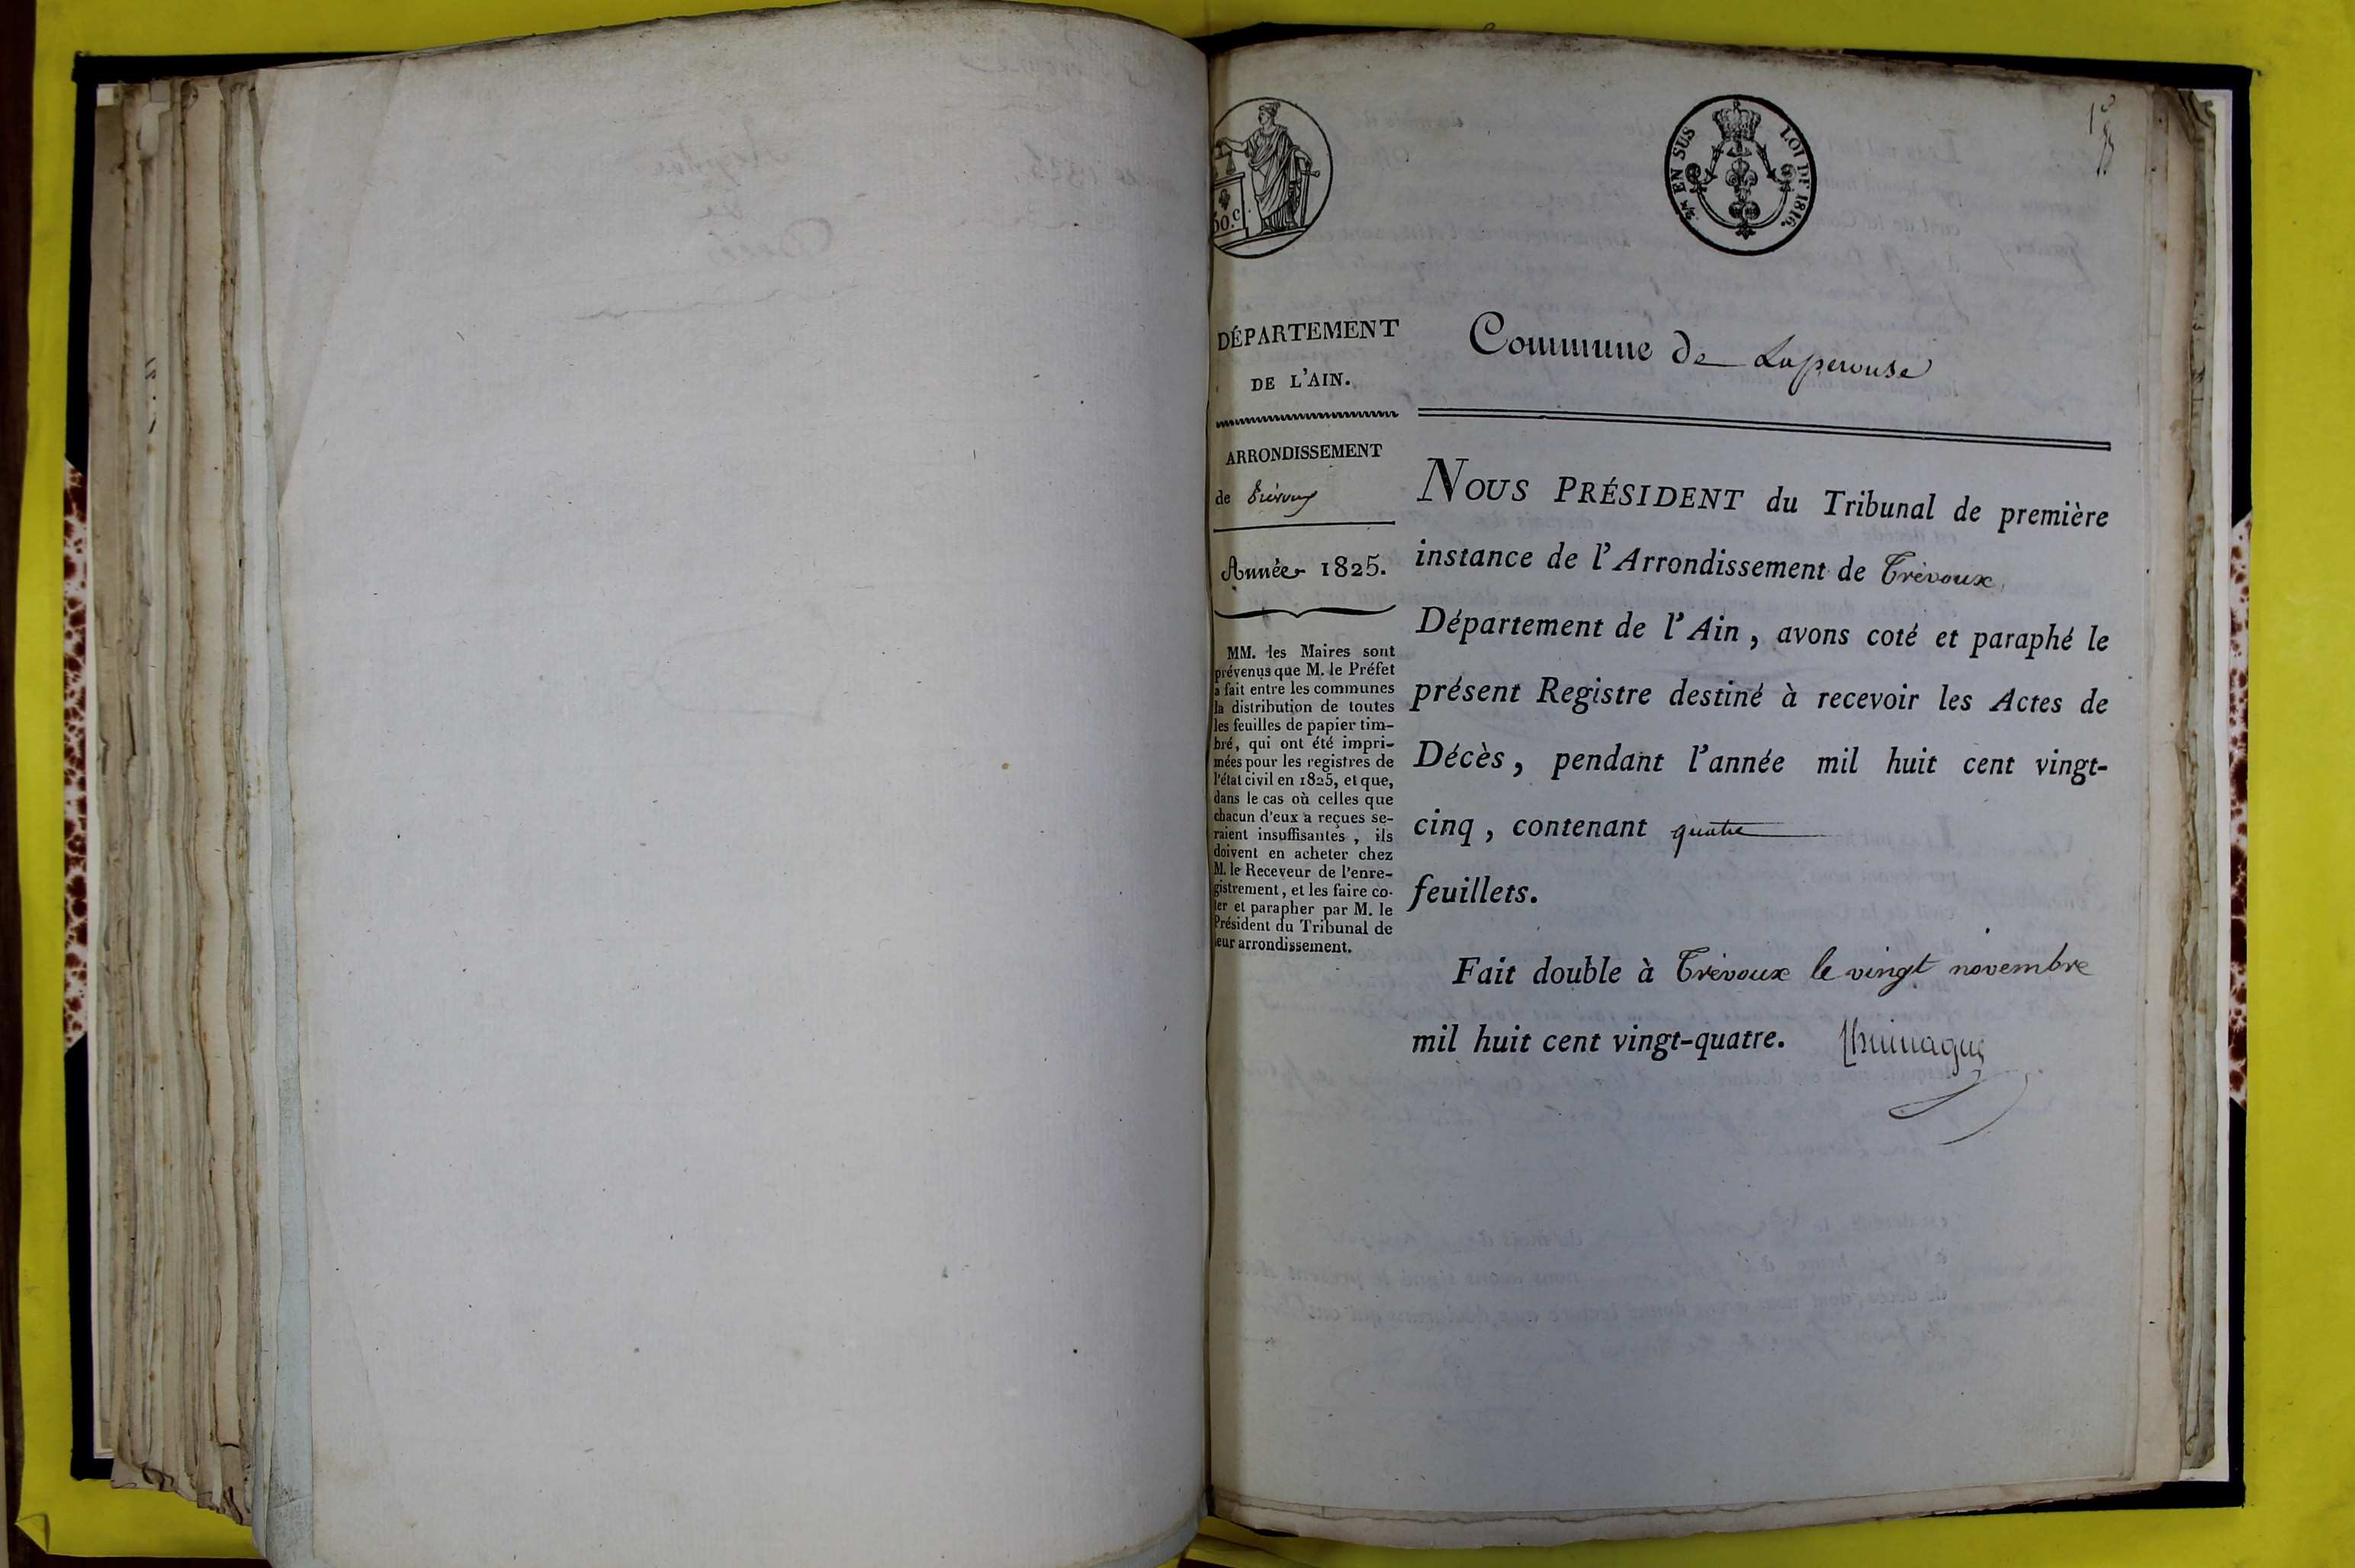 EN SUS
LOI DE 1816.
DÉPARTEMENT
DE L'AIN.
ARRONDISSEMENT
de Trévoux
Année 1825.
MM. les Maires sont
prévenus que M. le Préfet
a fait entre les communes
la distribution de toutes
les feuilles de papier tim-
bré, qui ont été impri-
mées pour les registres de
l'état civil en 1825, et que,
dans le cas où celles que
chacun d'eux a reçues se-
raient insuffisantes, ils
doivent en acheter chez
M. le Receveur de l'enre-
gistrement, et les faire co-
ter et parapher par M. le
Président du Tribunal de
leur arrondissement.
Commune de Laperouse
NOUS PRÉSIDENT du Tribunal de première
instance de l'Arrondissement de Trévoux,
Département de l'Ain, avons coté et paraphé le
présent Registre destiné à recevoir les Actes de
Décès, pendant l'année mil huit cent vingt-
cinq, contenant quatre
feuillets.
Fait double à Trévoux le vingt novembre
mil huit cent vingt-quatre.